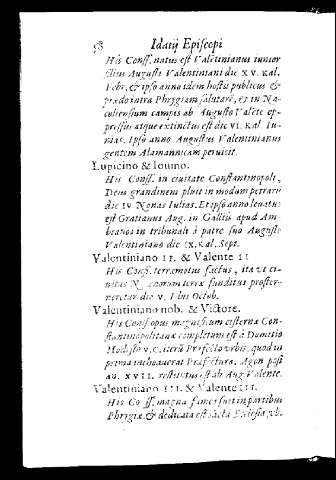 58 Idatij Episcopi
His Conss. natus est Valētinianus iunior
filius Augusti Valentiniani die XV. Kal.
Febr. & ipso anno idem hostis publicus &
prædo intra Phrygiam salutarē, et in Na-
coliensium campis ab Augusto Valēte op-
pressus atque extinctus est die VI. Kal. Iu-
nias. Ipso anno Augustus Valentinianus
gentem Alamannicam peruicit.
Lupicino & Iouino.
His Conss. in ciuitate Constantinopoli,
Deus grandinem pluit in modum petrarū
die IV Nonas Iulias. Et ipso anno leuatus
est Gratianus Aug. in Galliis apud Am-
beanos in tribunali à patre suo Augusto
Valentiniano die IX. Kal. Sept.
Valentiniano II. & Valente II
His Conss. terræmotus factus, ita vt ci-
uitas Nicænorum terræ funditus proster-
neretur die V. Idus Octob.
Valentiniano nob. & Victore.
His Conss opus magnificum cisternæ Con-
stantinopolitanæ completum est à Domitio
Modesto v.c. iterū Præfecto vrbis, quod in
prima inchoauerat Præfectura. Agon post
an. XVII. restitutus est ab Aug. Valente.
Valentiniano III. & Valente III.
His Coss. magna fames fuit in partibus
Phrygiæ. & dedicata est